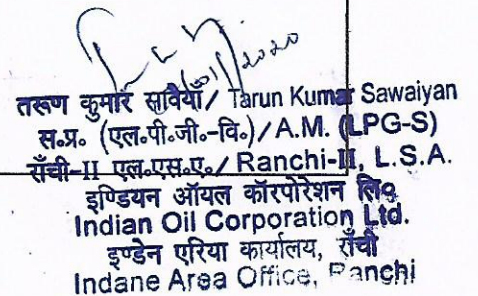 तरूण कुमार सावैयाँ/ Tarun Kumar Sawaiyan
स.प्र. (एल.पी.जी.-वि.)/A.M. (LPG-S)
राँची-II एल.एस.ए./ Ranchi-II, L.S.A.
इण्डियन ऑयल कॉरपोरेशन लि०
Indian Oil Corporation Ltd.
इण्डेन एरिया कार्यालय, राँची
Indane Area Office, Ranchi